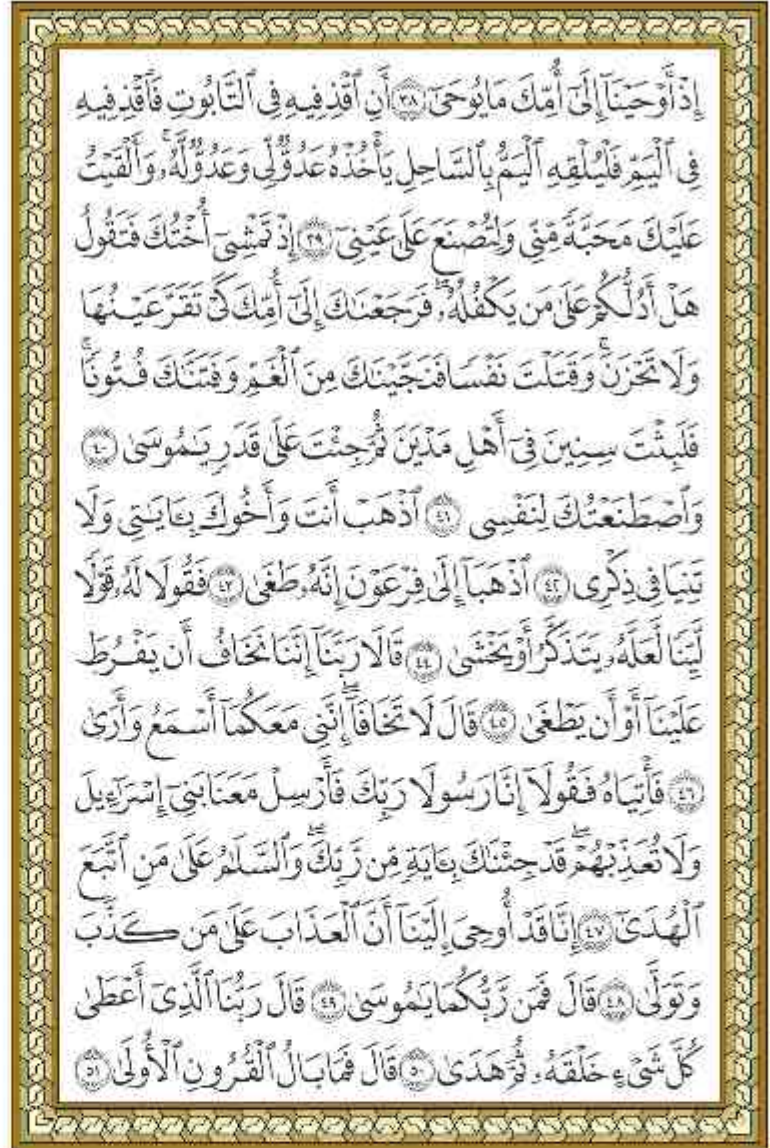 إِذْ أَوْحَيْنَآ إِلَىٰٓ أُمِّكَ مَا يُوحَىٰٓ ٣٨ أَنِ ٱقْذِفِيهِ فِى ٱلتَّابُوتِ فَٱقْذِفِيهِ
فِى ٱلْيَمِّ فَلْيُلْقِهِ ٱلْيَمُّ بِٱلسَّاحِلِ يَأْخُذْهُ عَدُوٌّ لِّى وَعَدُوٌّ لَّهُۥ ۚ وَأَلْقَيْتُ
عَلَيْكَ مَحَبَّةً مِّنِّى وَلِتُصْنَعَ عَلَىٰ عَيْنِىٓ ٣٩ إِذْ تَمْشِىٓ أُخْتُكَ فَتَقُولُ
هَلْ أَدُلُّكُمْ عَلَىٰ مَن يَكْفُلُهُۥ ۖ فَرَجَعْنَٰكَ إِلَىٰٓ أُمِّكَ كَىْ تَقَرَّ عَيْنُهَا
وَلَا تَحْزَنَ ۚ وَقَتَلْتَ نَفْسًا فَنَجَّيْنَٰكَ مِنَ ٱلْغَمِّ وَفَتَنَّٰكَ فُتُونًا ۚ
فَلَبِثْتَ سِنِينَ فِىٓ أَهْلِ مَدْيَنَ ثُمَّ جِئْتَ عَلَىٰ قَدَرٍ يَٰمُوسَىٰ ٤٠
وَٱصْطَنَعْتُكَ لِنَفْسِى ٤١ ٱذْهَبْ أَنتَ وَأَخُوكَ بِـَٔايَٰتِى وَلَا
تَنِيَا فِى ذِكْرِى ٤٢ ٱذْهَبَآ إِلَىٰ فِرْعَوْنَ إِنَّهُۥ طَغَىٰ ٤٣ فَقُولَا لَهُۥ قَوْلًا
لَّيِّنًا لَّعَلَّهُۥ يَتَذَكَّرُ أَوْ يَخْشَىٰ ٤٤ قَالَا رَبَّنَآ إِنَّنَا نَخَافُ أَن يَفْرُطَ
عَلَيْنَآ أَوْ أَن يَطْغَىٰ ٤٥ قَالَ لَا تَخَافَآ ۖ إِنَّنِى مَعَكُمَآ أَسْمَعُ وَأَرَىٰ
٤٦ فَأْتِيَاهُ فَقُولَآ إِنَّا رَسُولَا رَبِّكَ فَأَرْسِلْ مَعَنَا بَنِىٓ إِسْرَٰٓءِيلَ
وَلَا تُعَذِّبْهُمْ ۖ قَدْ جِئْنَٰكَ بِـَٔايَةٍ مِّن رَّبِّكَ ۖ وَٱلسَّلَٰمُ عَلَىٰ مَنِ ٱتَّبَعَ
ٱلْهُدَىٰٓ ٤٧ إِنَّا قَدْ أُوحِىَ إِلَيْنَآ أَنَّ ٱلْعَذَابَ عَلَىٰ مَن كَذَّبَ
وَتَوَلَّىٰ ٤٨ قَالَ فَمَن رَّبُّكُمَا يَٰمُوسَىٰ ٤٩ قَالَ رَبُّنَا ٱلَّذِىٓ أَعْطَىٰ
كُلَّ شَىْءٍ خَلْقَهُۥ ثُمَّ هَدَىٰ ٥٠ قَالَ فَمَا بَالُ ٱلْقُرُونِ ٱلْأُولَىٰ ٥١